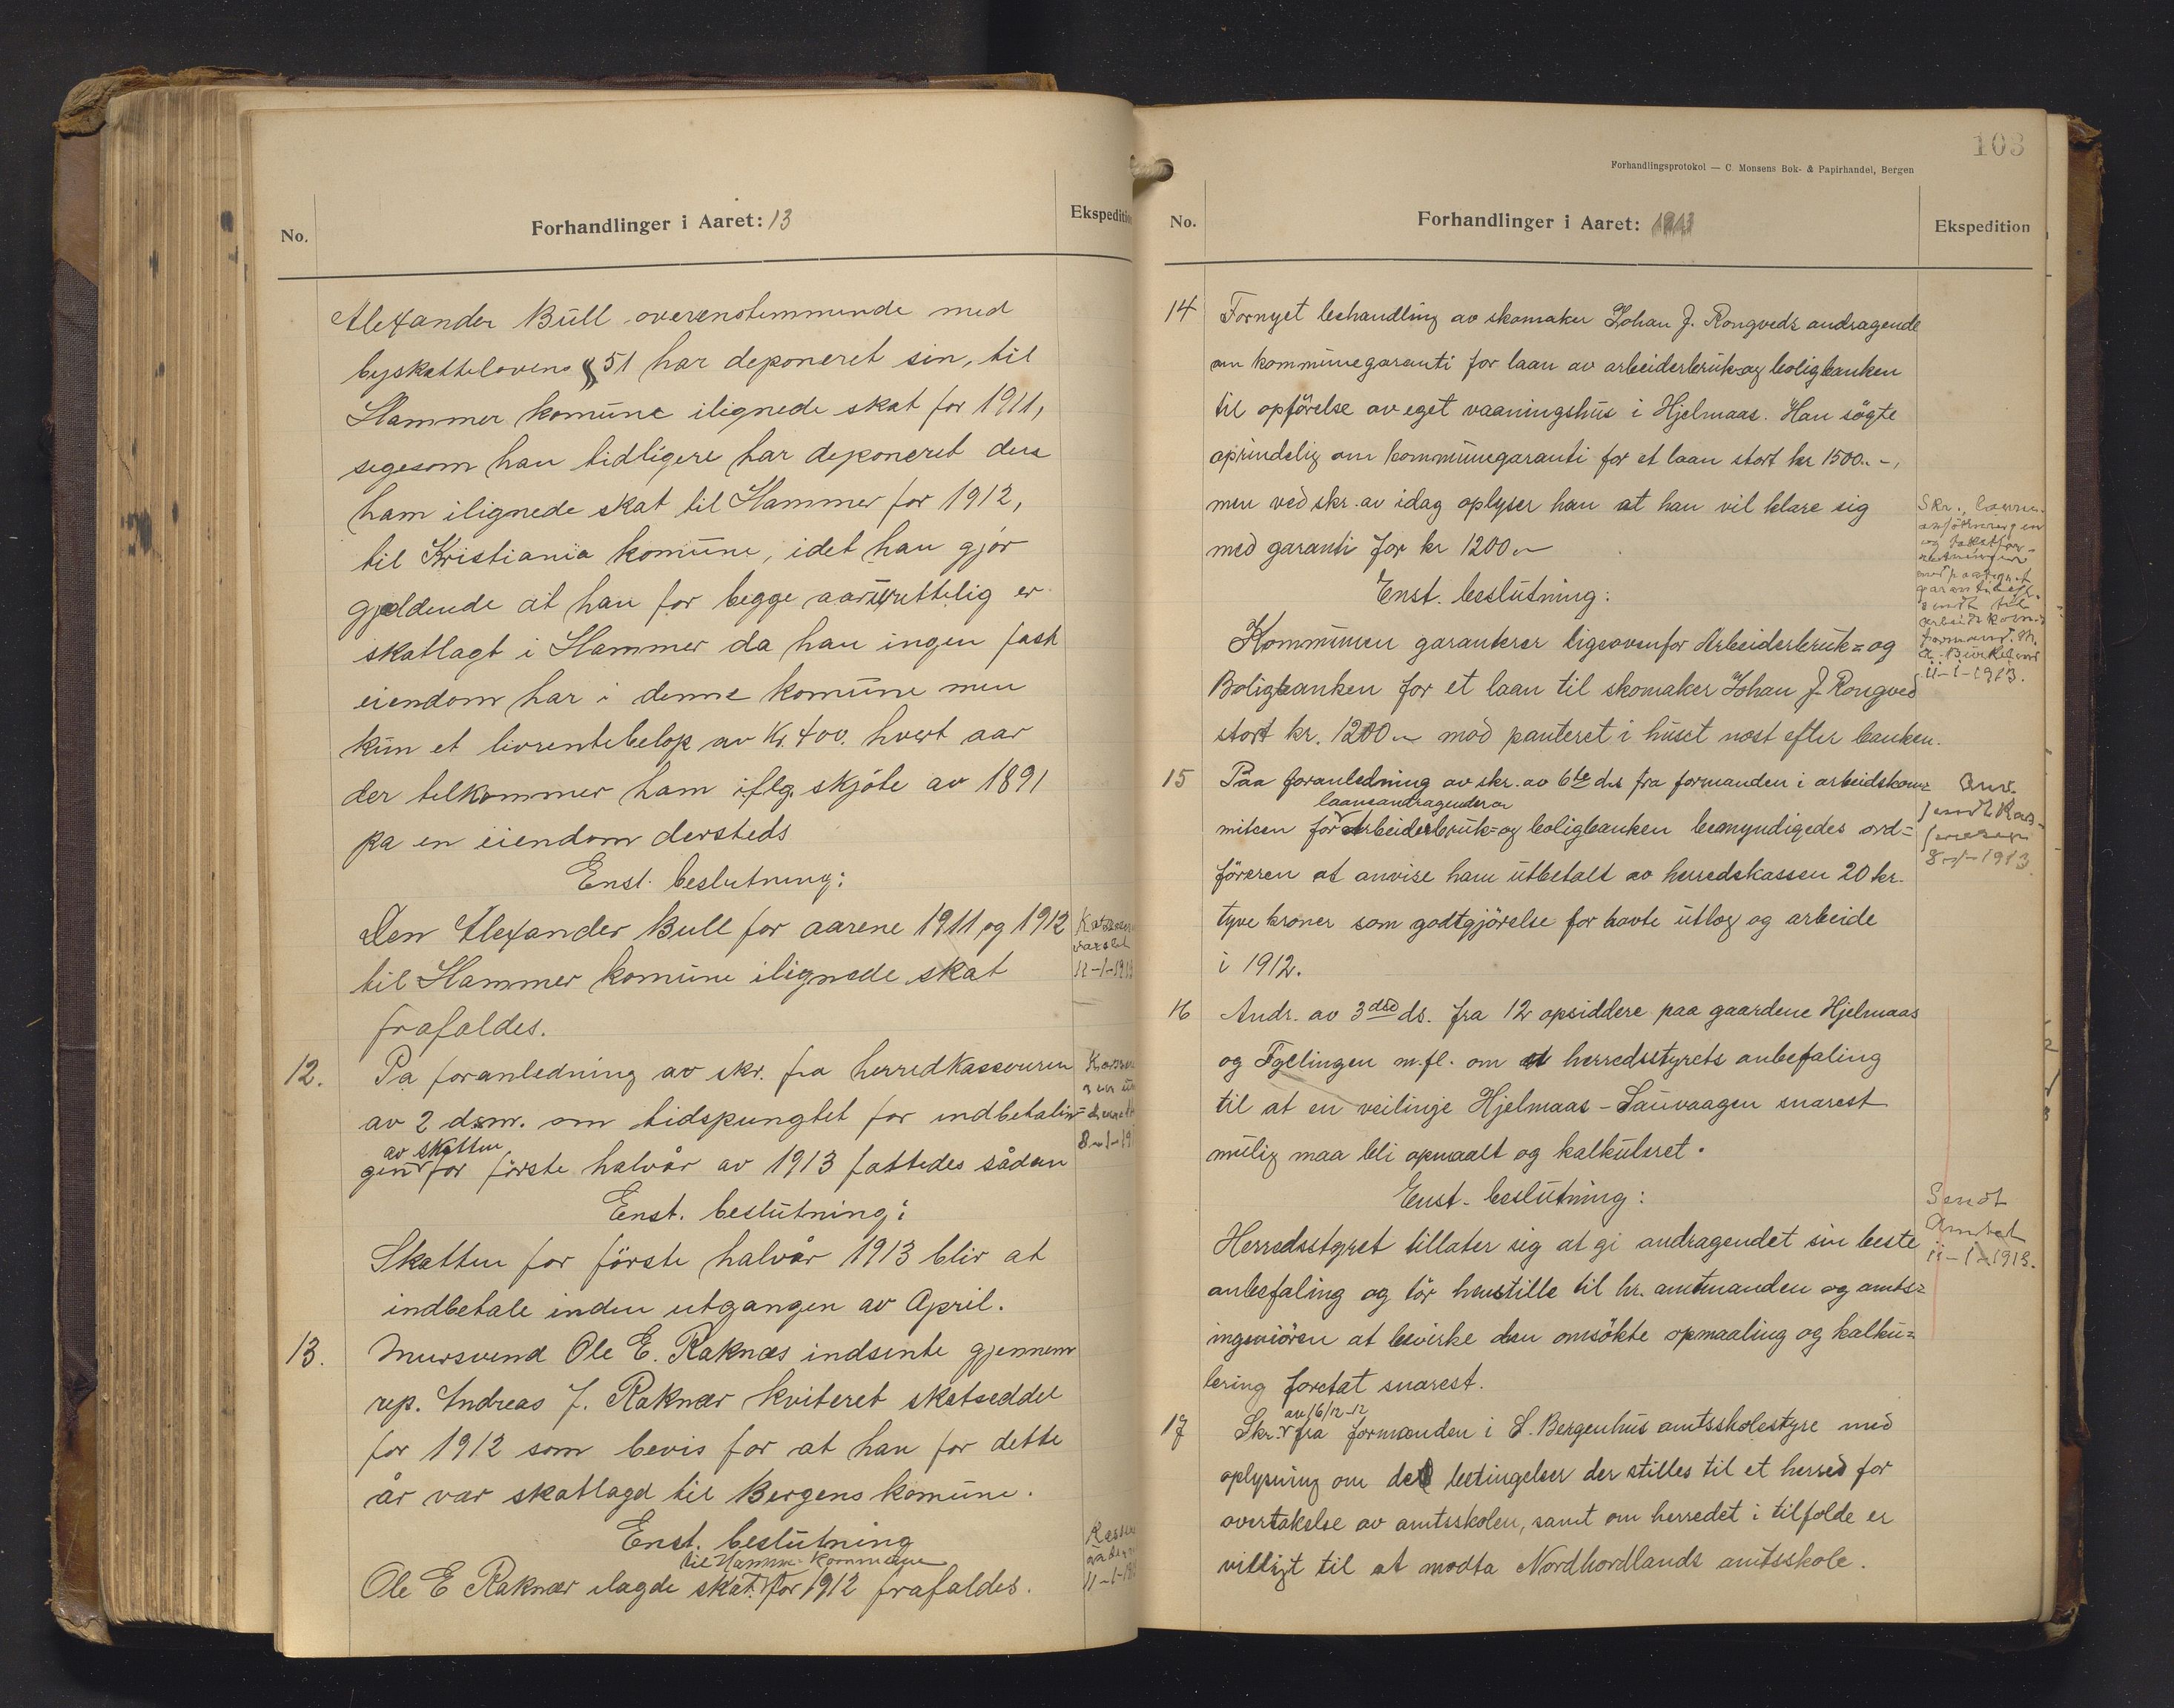 No.
Forhandlinger i Aaret: 13
Ekspedition
Alexander Bull overenstemmende med
byskattelovens § 51 har deponeret sin, til
Hammer komune ilignede skat for 1911,
segesom han tidligere har deponeret den
ham ilignede skat til Hammer for 1912,
til Kristiania komune, idet han gjør
gjældende at han for begge aar urettelig er
skatlagt i Hammer da han ingen fast
eiendom har i denne komune men
kun et livrentebeløp av Kr. 400. hvert aar
der tilkommer ham iflg. skjöte av 1891
pa en eiendom dersteds
Enst. beslutning:
Den Alexander Bull for aarene 1911 og 1912
til Hammer komune ilignede skat
frafaldes.
varslet
11-1-1913
12.
Pa foranledning av skr. fra herredkassereren
av 2 dsmr. om tidspungtet for indbetalin-
av skatten
gen for förste halvår av 1913 fattedes sådan
8-1-191
Enst. beslutning:
Skatten for förste halvår 1913 blir at
indbetale inden utgangen av April.
13.
Mursvend Ole E. Raknæs indsente gjennem
rep. Andreas J. Raknæs kviteret skatseddel
for 1912 som bevis for at han for dette
år var skatlagd til Bergens komune.
Enst. beslutning
til Hammer kommune
Ole E Raknæs ilagde skat for 1912 frafaldes.
11-1-191
103
Forhandlingsprotokol — C. Monsens Bok- & Papirhandel, Bergen
No.
Forhandlinger i Aaret: 1913
Ekspedition
14
Fornyet behandling av skomaker Johan J. Rongveds andragende
om kommunegaranti for laan av arbeiderbruk- og boligbanken
til opförelse av eget vaaningshus i Hjelmaas. Han sögte
oprindelig om kommunegaranti for et laan stort kr 1500.-,
men ved skr. av idag oplyser han at han vil klare sig
med garanti for kr 1200.-
Enst. beslutning:
Kommunen garanterer ligeovenfor Arbeiderbruk= og
Boligbanken for et laan til skomaker Johan J. Rongved
stort kr. 1200.- mod panteret i huset næst efter banken.
Skr., laane-
ansökningen
og takstfor-
retningen
med paategnet
sendt til
arbeidskom.
formand
11-1-1913.
15
Paa foranledning av skr. av 6te ds fra formanden i arbeidskom=
laaneandragender av
miteen for Arbeiderbruk= og boligbanken bemyndigedes ord=
föreren at anvise ham utbetalt av herredskassen 20 kr.
tyve kroner som godtgjörelse for havte utlæg og arbeide
i 1912.
Anv.
sendt Kas-
sereren
8-1-1913.
16
Andr. av 3die ds. fra 12 opsiddere paa gaardene Hjelmaas
og Fyllingen m.fl. om herredsstyrets anbefaling
til at en veilinje Hjelmaas - Sauvaagen snarest
mulig maa bli opmaalt og kalkuleret.
Enst. beslutning:
Herredsstyret tillater sig at gi andragendet sin beste
anbefaling og tör henstille til hr. amtmanden og amts=
ingeniören at bevirke den omsökte opmaaling og kalku=
lering foretat snarest.
Sendt
Amtet
11-1-1913.
17
av 16/12-12
Skr. fra formanden i S. Bergenhus amtsskolestyre med
oplysning om de betingelser der stilles til et herred for
overtakelse av amtsskolen, samt om herredet i tilfælde er
villigt til at modta Nordhordlands amtsskole.